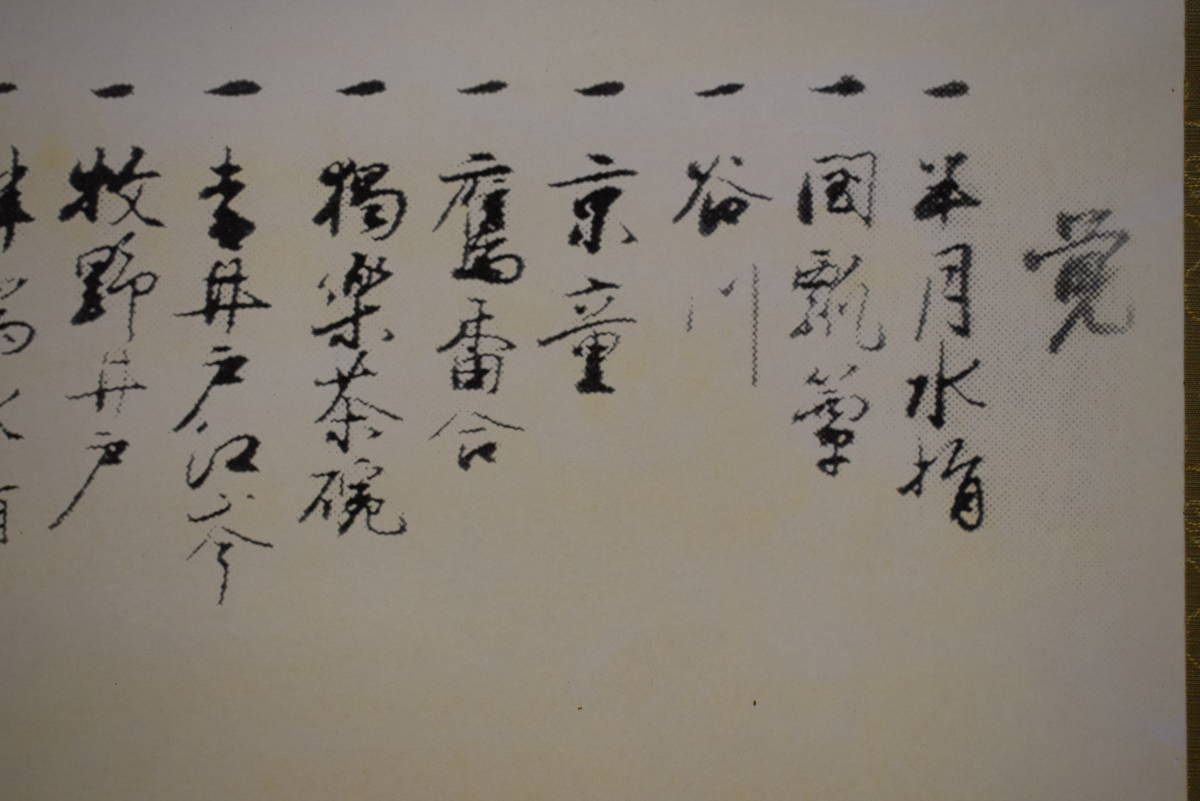 覚
一 半月水指
一 国瓢箪
一 谷川
一 京童
一 鷹香合
一 獨楽茶碗
一 青井戸江岑
一 牧野井戸
一